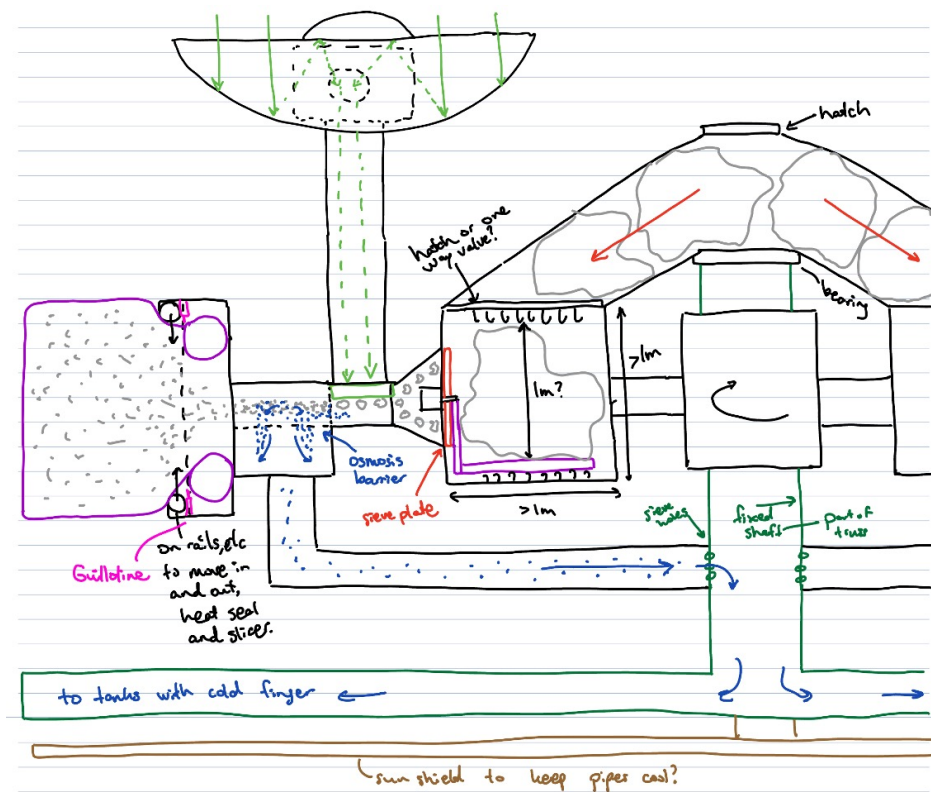 hatch
hatch or one
way valve?
bearing
>1m
1m?
osmosis
barrier
sieve plate
>1m
sieve
holes
fixed
shaft
part of
truss
Guillotine
on rails, etc
to move in
and out,
heat seal
and slicer.
to tanks with cold finger
sun shield to keep pipes cool?